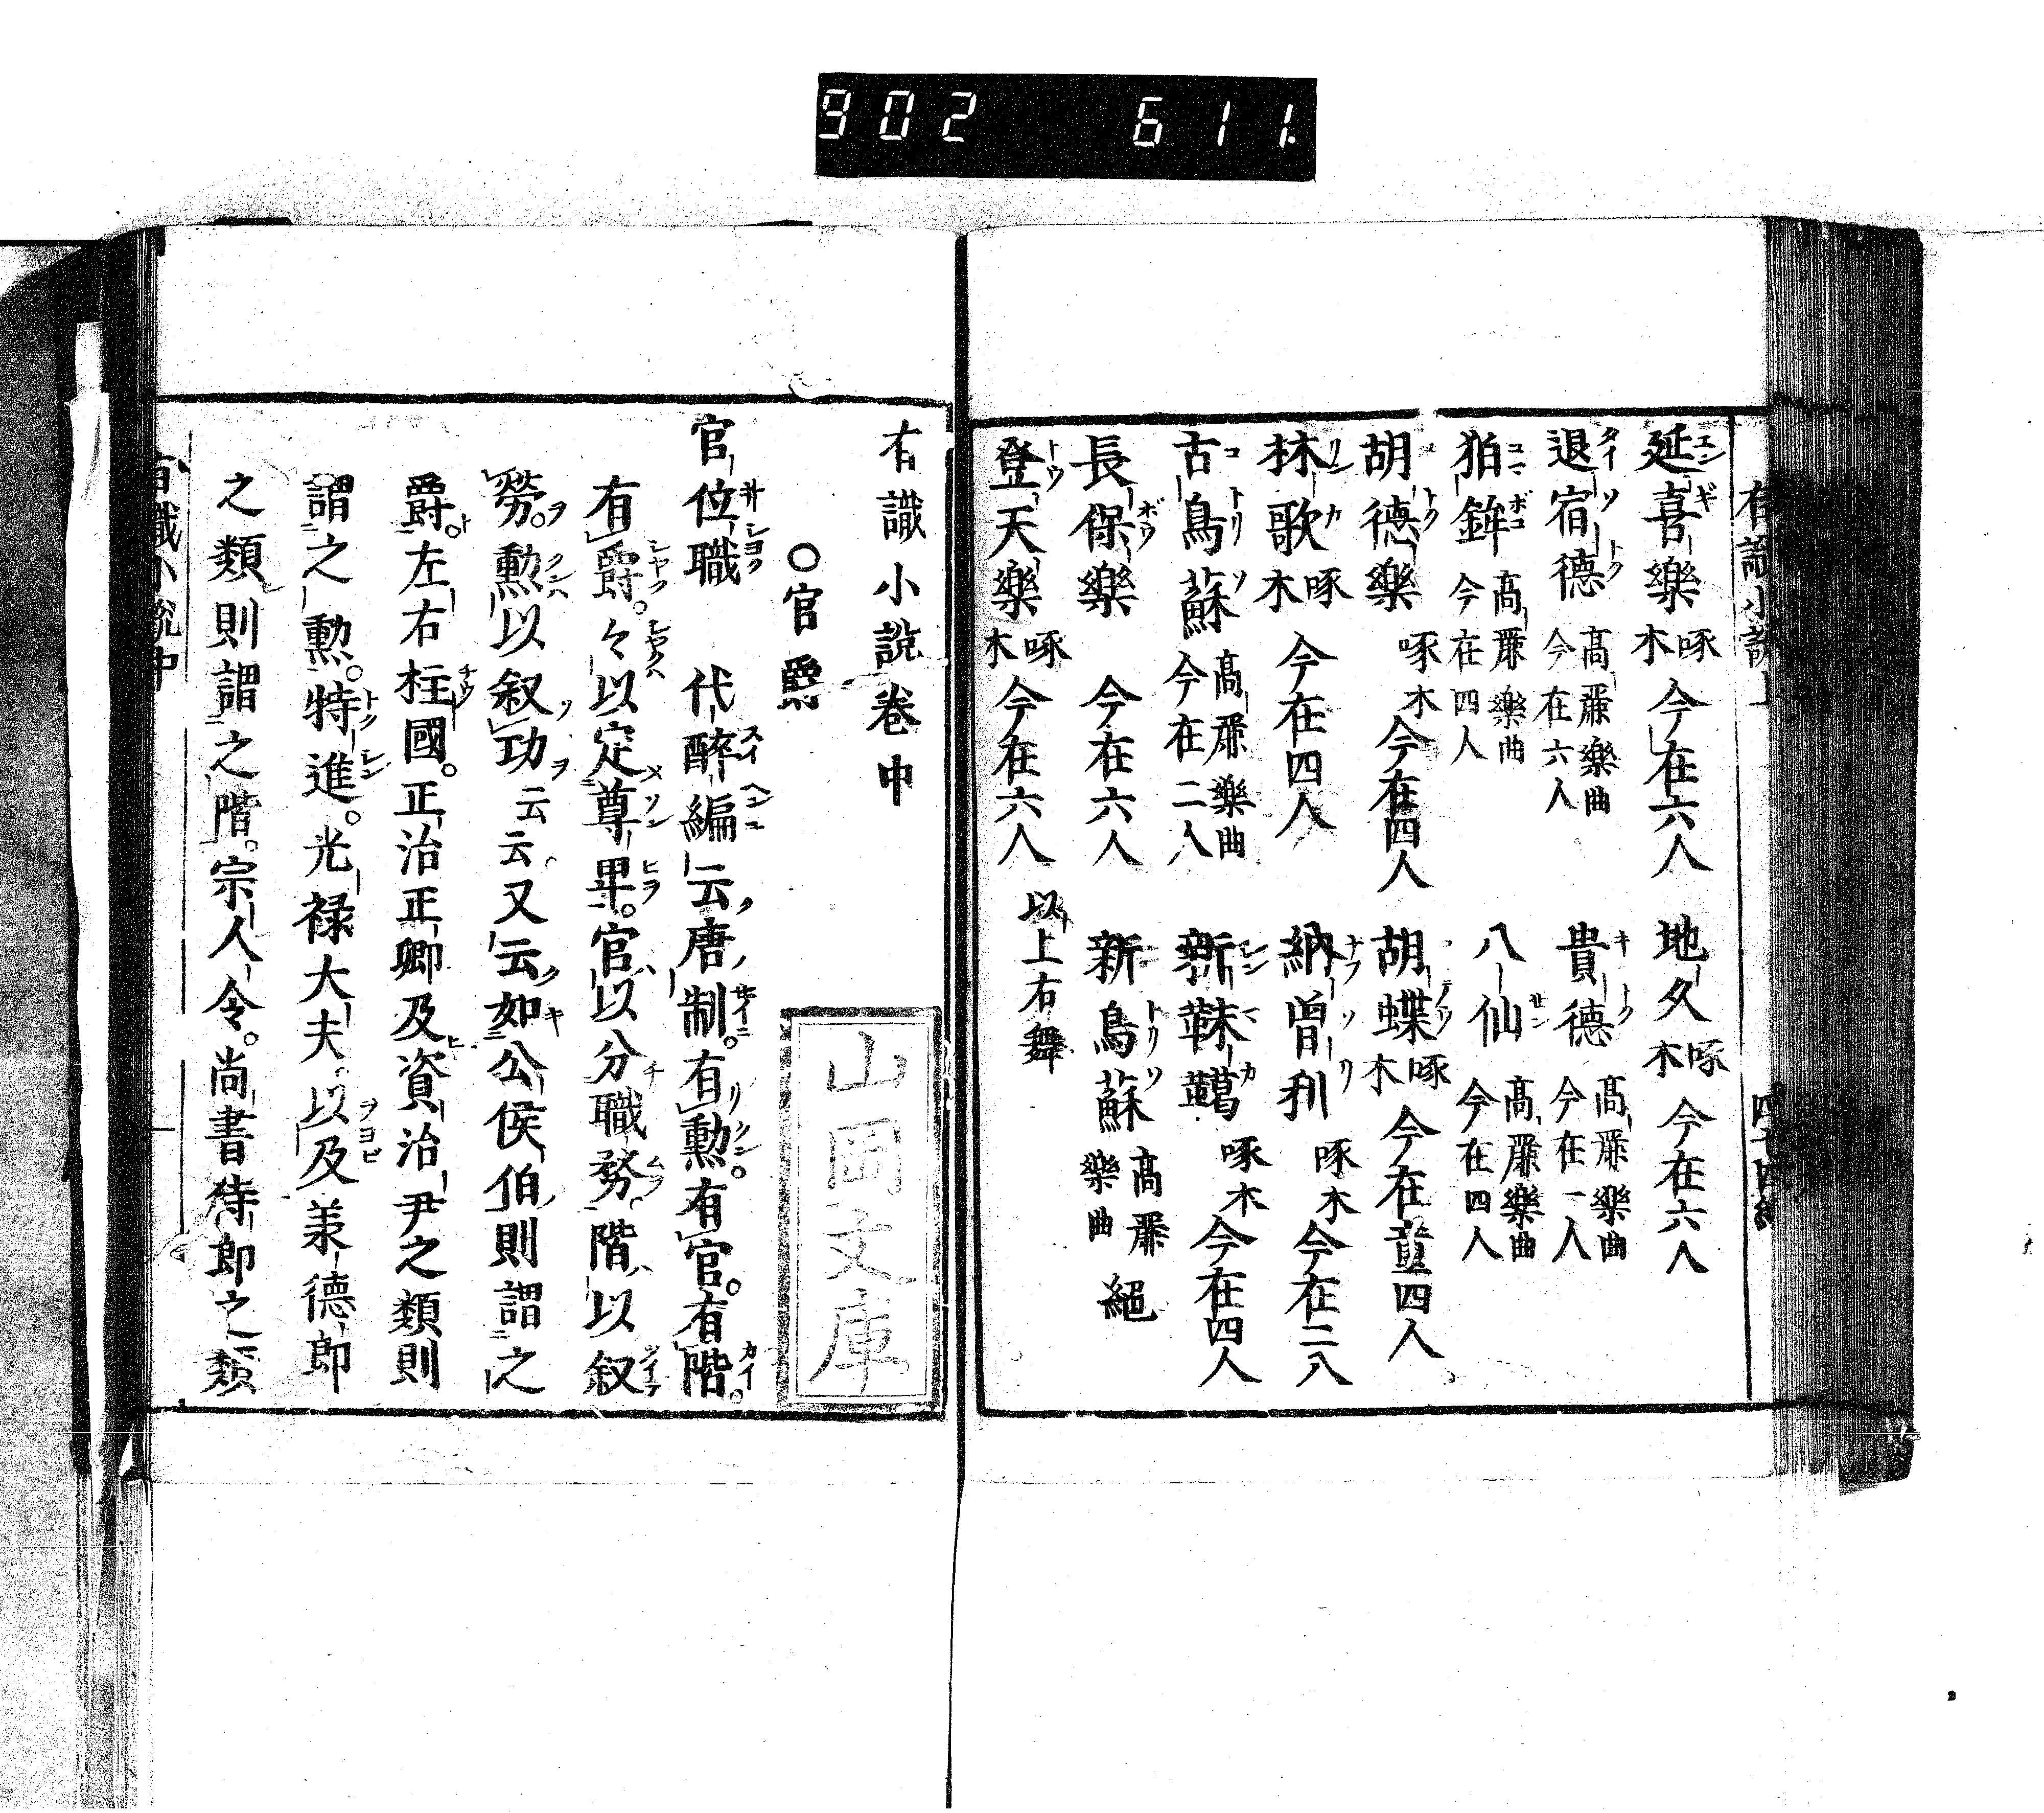 902 611.
延喜樂 啄木 今在六人 地久 啄木 今在六人
退宿德 高麗樂曲 今在六人 貴德 高麗樂曲 今在一人
狛鉾 高麗樂曲 今在四人 八仙 高麗樂曲 今在四人
胡德樂 啄木 今在四人 胡蝶 啄木 今在童四人
林歌 啄木 今在四人 納曽利 啄木 今在二人
古鳥蘇 高麗樂曲 今在二人 新靺鞨 啄木 今在四人
長保樂 今在六人 新鳥蘇 高麗樂曲 絕
登天樂 啄木 今在六人 以上右舞
有識小說卷中
○官爵
山岡文庫
官位職 代醉編云唐制。有勲。有官。有階。
有爵。々以定尊畢。官以分職務階以叙
勞。勲以叙功云云又云如公侯伯則謂之
爵。左右柱國。正治正卿及資治尹之類則
謂之勲。特進。光禄大夫。以及羕德郎
之類則謂之階。宗人令。尚書侍郎之類
有識小說中